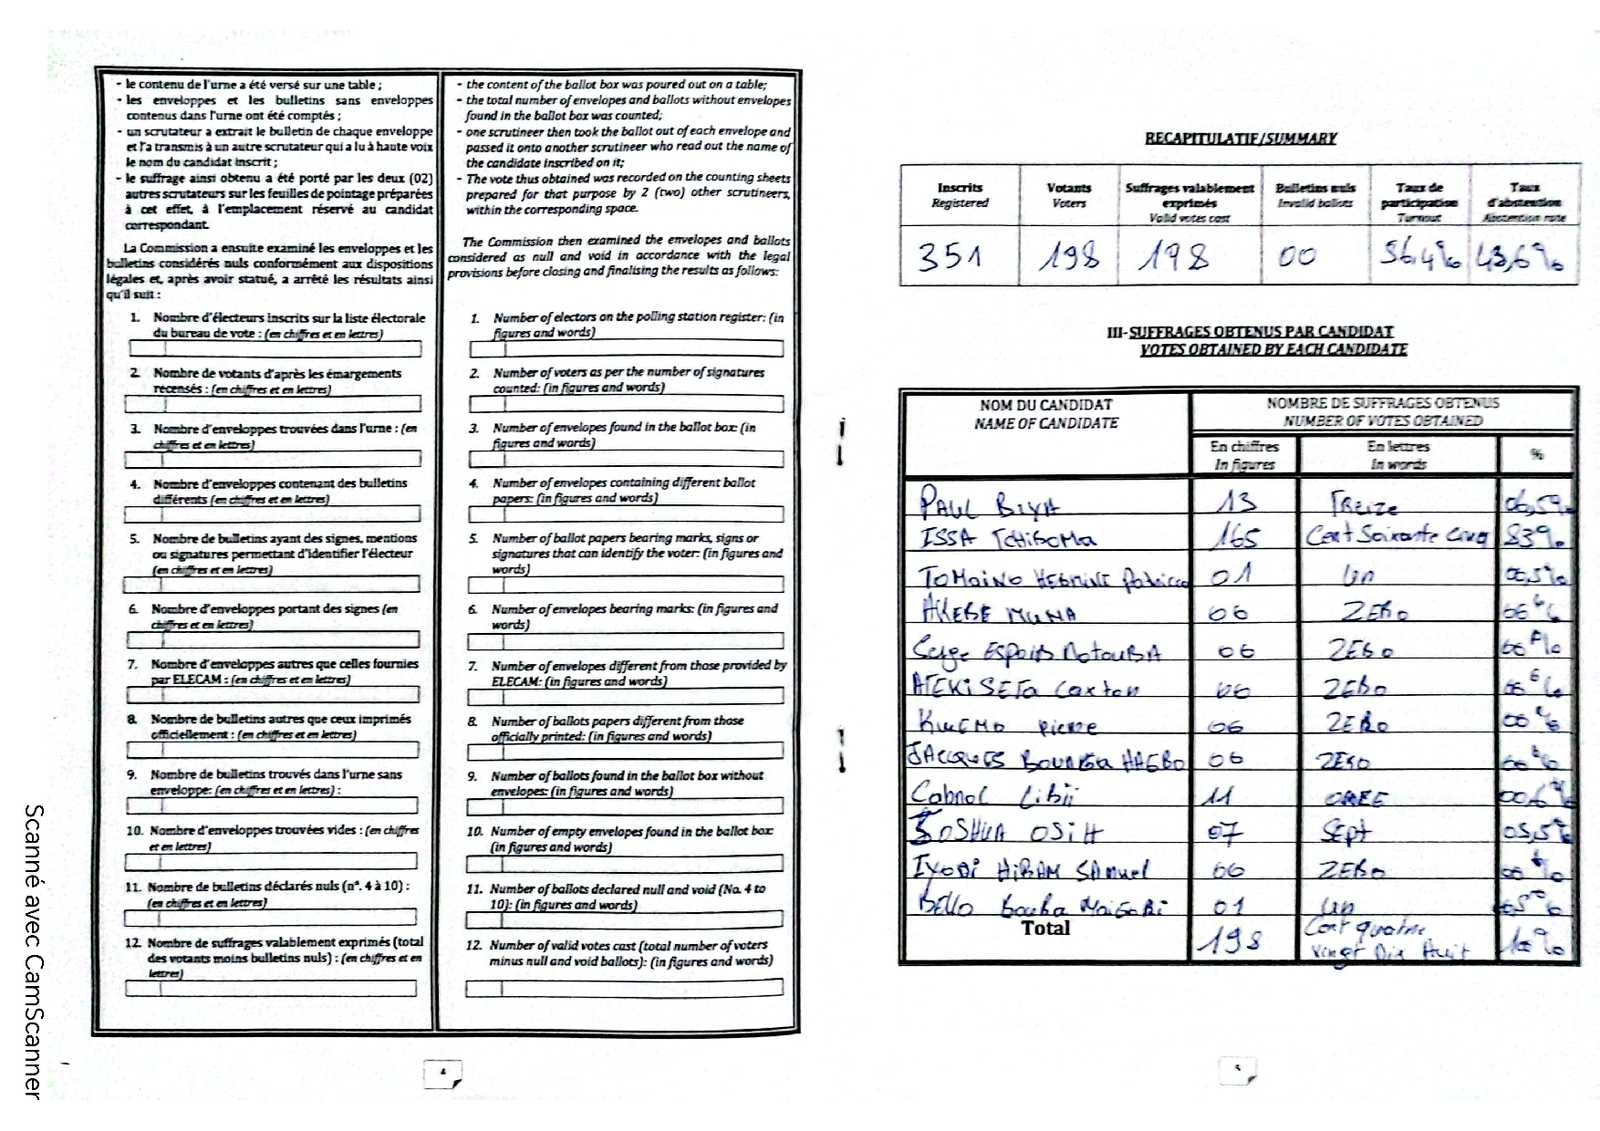 - le contenu de l'urne a été versé sur une table ;
- les enveloppes et les bulletins sans enveloppes
contenus dans l'urne ont été comptés ;
- un scrutateur a extrait le bulletin de chaque enveloppe
et l'a transmis à un autre scrutateur qui a lu à haute voix
le nom du candidat inscrit ;
- le suffrage ainsi obtenu a été porté par les deux (02)
autres scrutateurs sur les feuilles de pointage préparées
à cet effet, à l'emplacement réservé au candidat
correspondant.
La Commission a ensuite examiné les enveloppes et les
bulletins considérés nuls conformément aux dispositions
légales et, après avoir statué, a arrêté les résultats ainsi
qu'il suit :
1. Nombre d'électeurs inscrits sur la liste électorale
du bureau de vote : (en chiffres et en lettres)
2. Nombre de votants d'après les émargements
recensés : (en chiffres et en lettres)
3. Nombre d'enveloppes trouvées dans l'urne : (en
chiffres et en lettres)
4. Nombre d'enveloppes contenant des bulletins
différents (en chiffres et en lettres)
5. Nombre de bulletins ayant des signes, mentions
ou signatures permettant d'identifier l'électeur
(en chiffres et en lettres)
6. Nombre d'enveloppes portant des signes (en
chiffres et en lettres)
7. Nombre d'enveloppes autres que celles fournies
par ELECAM : (en chiffres et en lettres)
8. Nombre de bulletins autres que ceux imprimés
officiellement : (en chiffres et en lettres)
9. Nombre de bulletins trouvés dans l'urne sans
enveloppe: (en chiffres et en lettres) :
10. Nombre d'enveloppes trouvées vides : (en chiffres
et en lettres)
11. Nombre de bulletins déclarés nuls (n°. 4 à 10) :
(en chiffres et en lettres)
12. Nombre de suffrages valablement exprimés (total
des votants moins bulletins nuls) : (en chiffres et en
lettres)
- the content of the ballot box was poured out on a table;
- the total number of envelopes and ballots without envelopes
found in the ballot box was counted;
- one scrutineer then took the ballot out of each envelope and
passed it onto another scrutineer who read out the name of
the candidate inscribed on it;
- The vote thus obtained was recorded on the counting sheets
prepared for that purpose by 2 (two) other scrutineers,
within the corresponding space.
The Commission then examined the envelopes and ballots
considered as null and void in accordance with the legal
provisions before closing and finalising the results as follows:
1. Number of electors on the polling station register: (in
figures and words)
2. Number of voters as per the number of signatures
counted: (in figures and words)
3. Number of envelopes found in the ballot box: (in
figures and words)
4. Number of envelopes containing different ballot
papers: (in figures and words)
5. Number of ballot papers bearing marks, signs or
signatures that can identify the voter: (in figures and
words)
6. Number of envelopes bearing marks: (in figures and
words)
7. Number of envelopes different from those provided by
ELECAM: (in figures and words)
8. Number of ballots papers different from those
officially printed: (in figures and words)
9. Number of ballots found in the ballot box without
envelopes: (in figures and words)
10. Number of empty envelopes found in the ballot box:
(in figures and words)
11. Number of ballots declared null and void (No. 4 to
10): (in figures and words)
12. Number of valid votes cast (total number of voters
minus null and void ballots): (in figures and words)
4
RECAPITULATIF/SUMMARY
Inscrits Registered | Votants Voters | Suffrages valablement exprimés Valid votes cast | Bulletins nuls Invalid ballots | Taux de participation Turnout | Taux d'abstention Abstention rate
351 198 198 00 56,4% 43,6%
III-SUFFRAGES OBTENUS PAR CANDIDAT
VOTES OBTAINED BY EACH CANDIDATE
NOM DU CANDIDAT
NAME OF CANDIDATE
NOMBRE DE SUFFRAGES OBTENUS
NUMBER OF VOTES OBTAINED
En chiffres In figures | En lettres In words | %
PAUL BIYA 13 Treize 06,5%
ISSA TCHIROMA 165 Cent Soixante Cinq 83%
TOMAINO HERMINE Patricia 01 Un 00,5%
AKERE MUNA 00 ZERO
Serge ESPOIR MATOUBA 00 ZERO
ATEKI SETA Caxton 00 ZERO
KWEMO Pierre 00 ZERO
JACQUES BOUNGHA HAGBO 00 ZERO
Cabral Libii 11 ONZE
JOSHUA OSIH 07 Sept 03,5%
IYODI HIRAM SAmuel 00 ZERO
BELLO Bouba MaiGaRi 01 Un
Total 198 Cent quatre
vingt Dix Huit
5
Scanné avec CamScanner